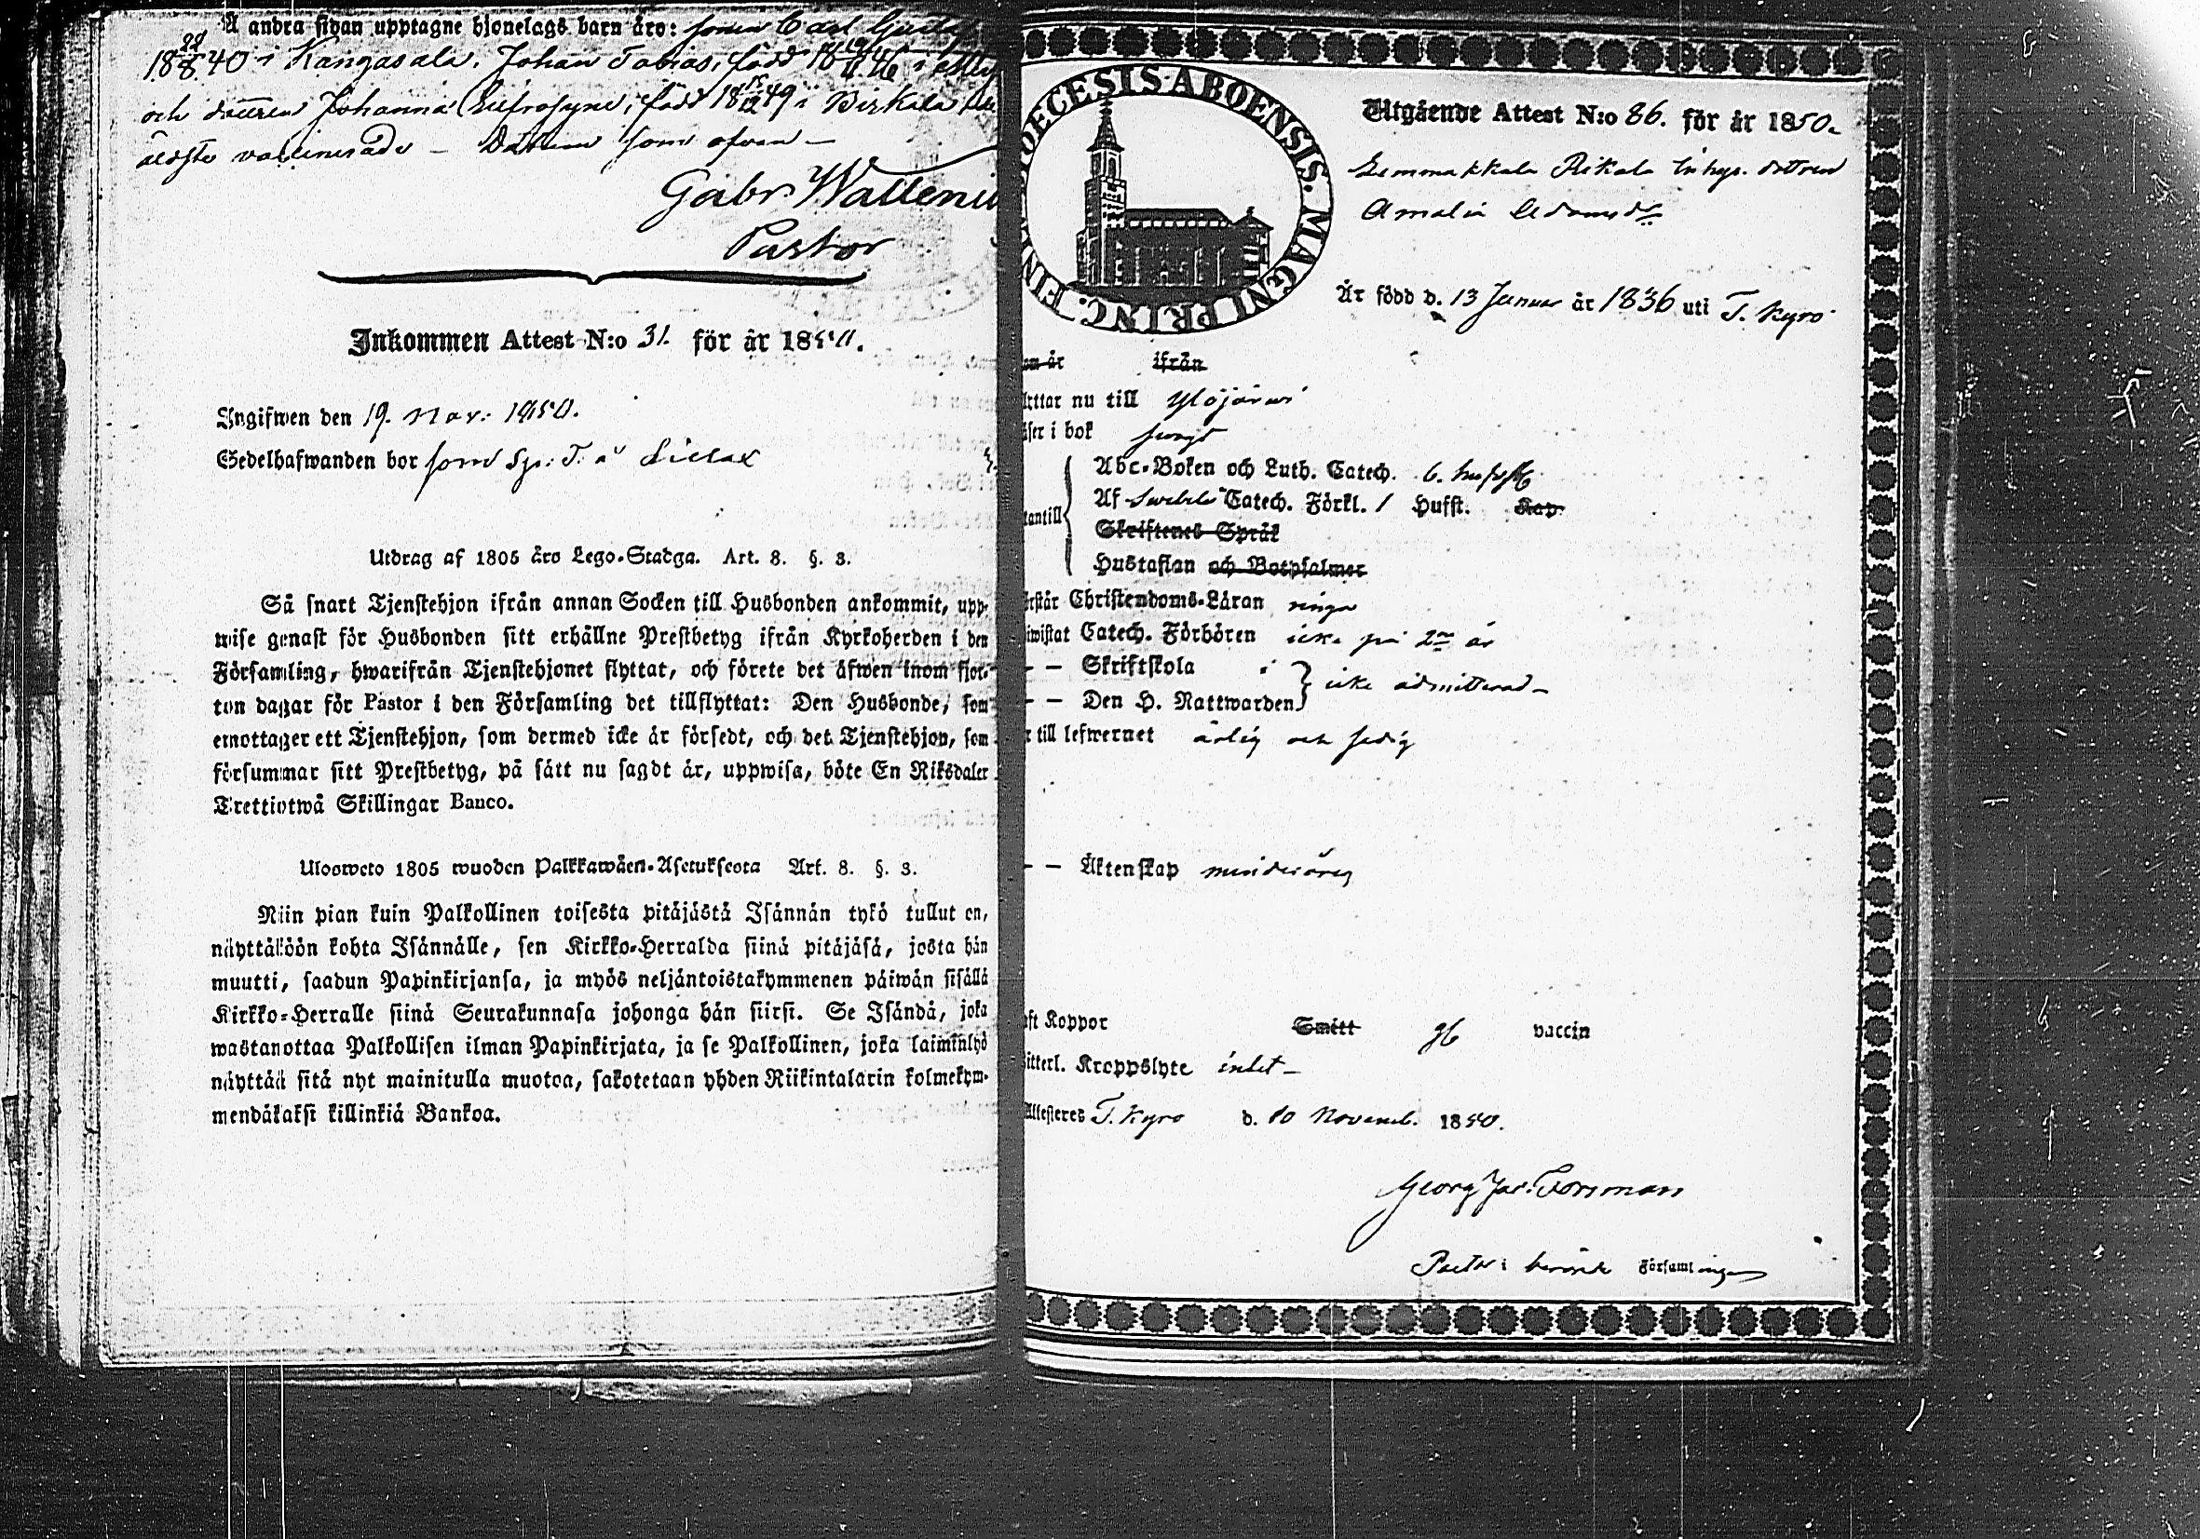 Å andra sidan upptagne hjonelags barn äro: sonen Carl Gustaf
18 29/8 40 i Kangasala, Johan Tobias, född 18 46 i
och dottren Johanna Eufrosyne, född 18 49 i Birkala
äldste vaccinerade – Datum som ofvan –
Gabr. Wallenius
Pastor
Inkommen Attest N:o 31. för år 1850.
Ingifwen den 19. Nov: 1850.
Sedelhafwanden bor som
Utdrag af 1805 års Lego-Stadga. Art. 8. §. 3.
Så snart Tjenstehjon ifrån annan Socken till Husbonden ankommit, upp-
wise genast för Husbonden sitt erhållne Prestbetyg ifrån Kyrkoherden i den
Församling, hwarifrån Tjenstehjonet flyttat, och förete det äfwen inom fjor-
ton dagar för Pastor i den Församling det tillflyttat: Den Husbonde, som
emottager ett Tjenstehjon, som dermed icke är försedt, och det Tjenstehjon, som
försummar sitt Prestbetyg, på sätt nu sagdt är, uppwisa, böte En Riksdaler
Trettiotwå Skillingar Banco.
Ulosweto 1805 wuoden Palkkawäen-Asetuksesta Art. 8. §. 3.
Niin pian kuin Palkollinen toisesta pitäjästä Isännän tykö tullut on,
näyttäköön kohta Isännälle, sen Kirkko-Herralda siinä pitäjäsä, josta hän
muutti, saadun Papinkirjansa, ja myös neljäntoistakymmenen päiwän sisällä
Kirkko-Herralle siinä Seurakunnasa johonga hän siirsi. Se Isändä, joka
wastanottaa Palkollisen ilman Papinkirjata, ja se Palkollinen, joka laiminlyö
näyttää sitä nyt mainitulla muotoa, sakotetaan yhden Riikintalarin kolmekym-
mendäkaksi killinkiä Bankoa.
DIOECESIS ABOENSIS. MAGNI PRINC. FIN
Utgående Attest N:o 86. för år 1850.
Lemmakkala Pikala Inhys. dottren
Amalia Adamsdr
Är född d. 13 Januar år 1836 uti T. Kyro
om år ifrån
lyttar nu till Ylöjärwi
äser i bok swagt
Abc-Boken och Luth. Catech. 6. hufvst
Af Swebelii Catech. Förkl. 1 Hufst. Kap.
tantill
Skriftenes Språk
Hustaflan och Botpsalmer
rstår Christendoms-Läran ringa
iwistat Catech. Förhören icke på 2ne år
– – Skriftskola
– – Den H. Nattwarden } icke admitterad –
r till lefwernet ärlig och sedig
– – Äktenskap minderårig
ft Koppor Smitt gh vaccin
itterl. Kroppslyte intet –
Attesteres T. Kyro d. 10 Novemb. 1850.
Georg Jac. Forsman
Pastor i berörde Församlingen